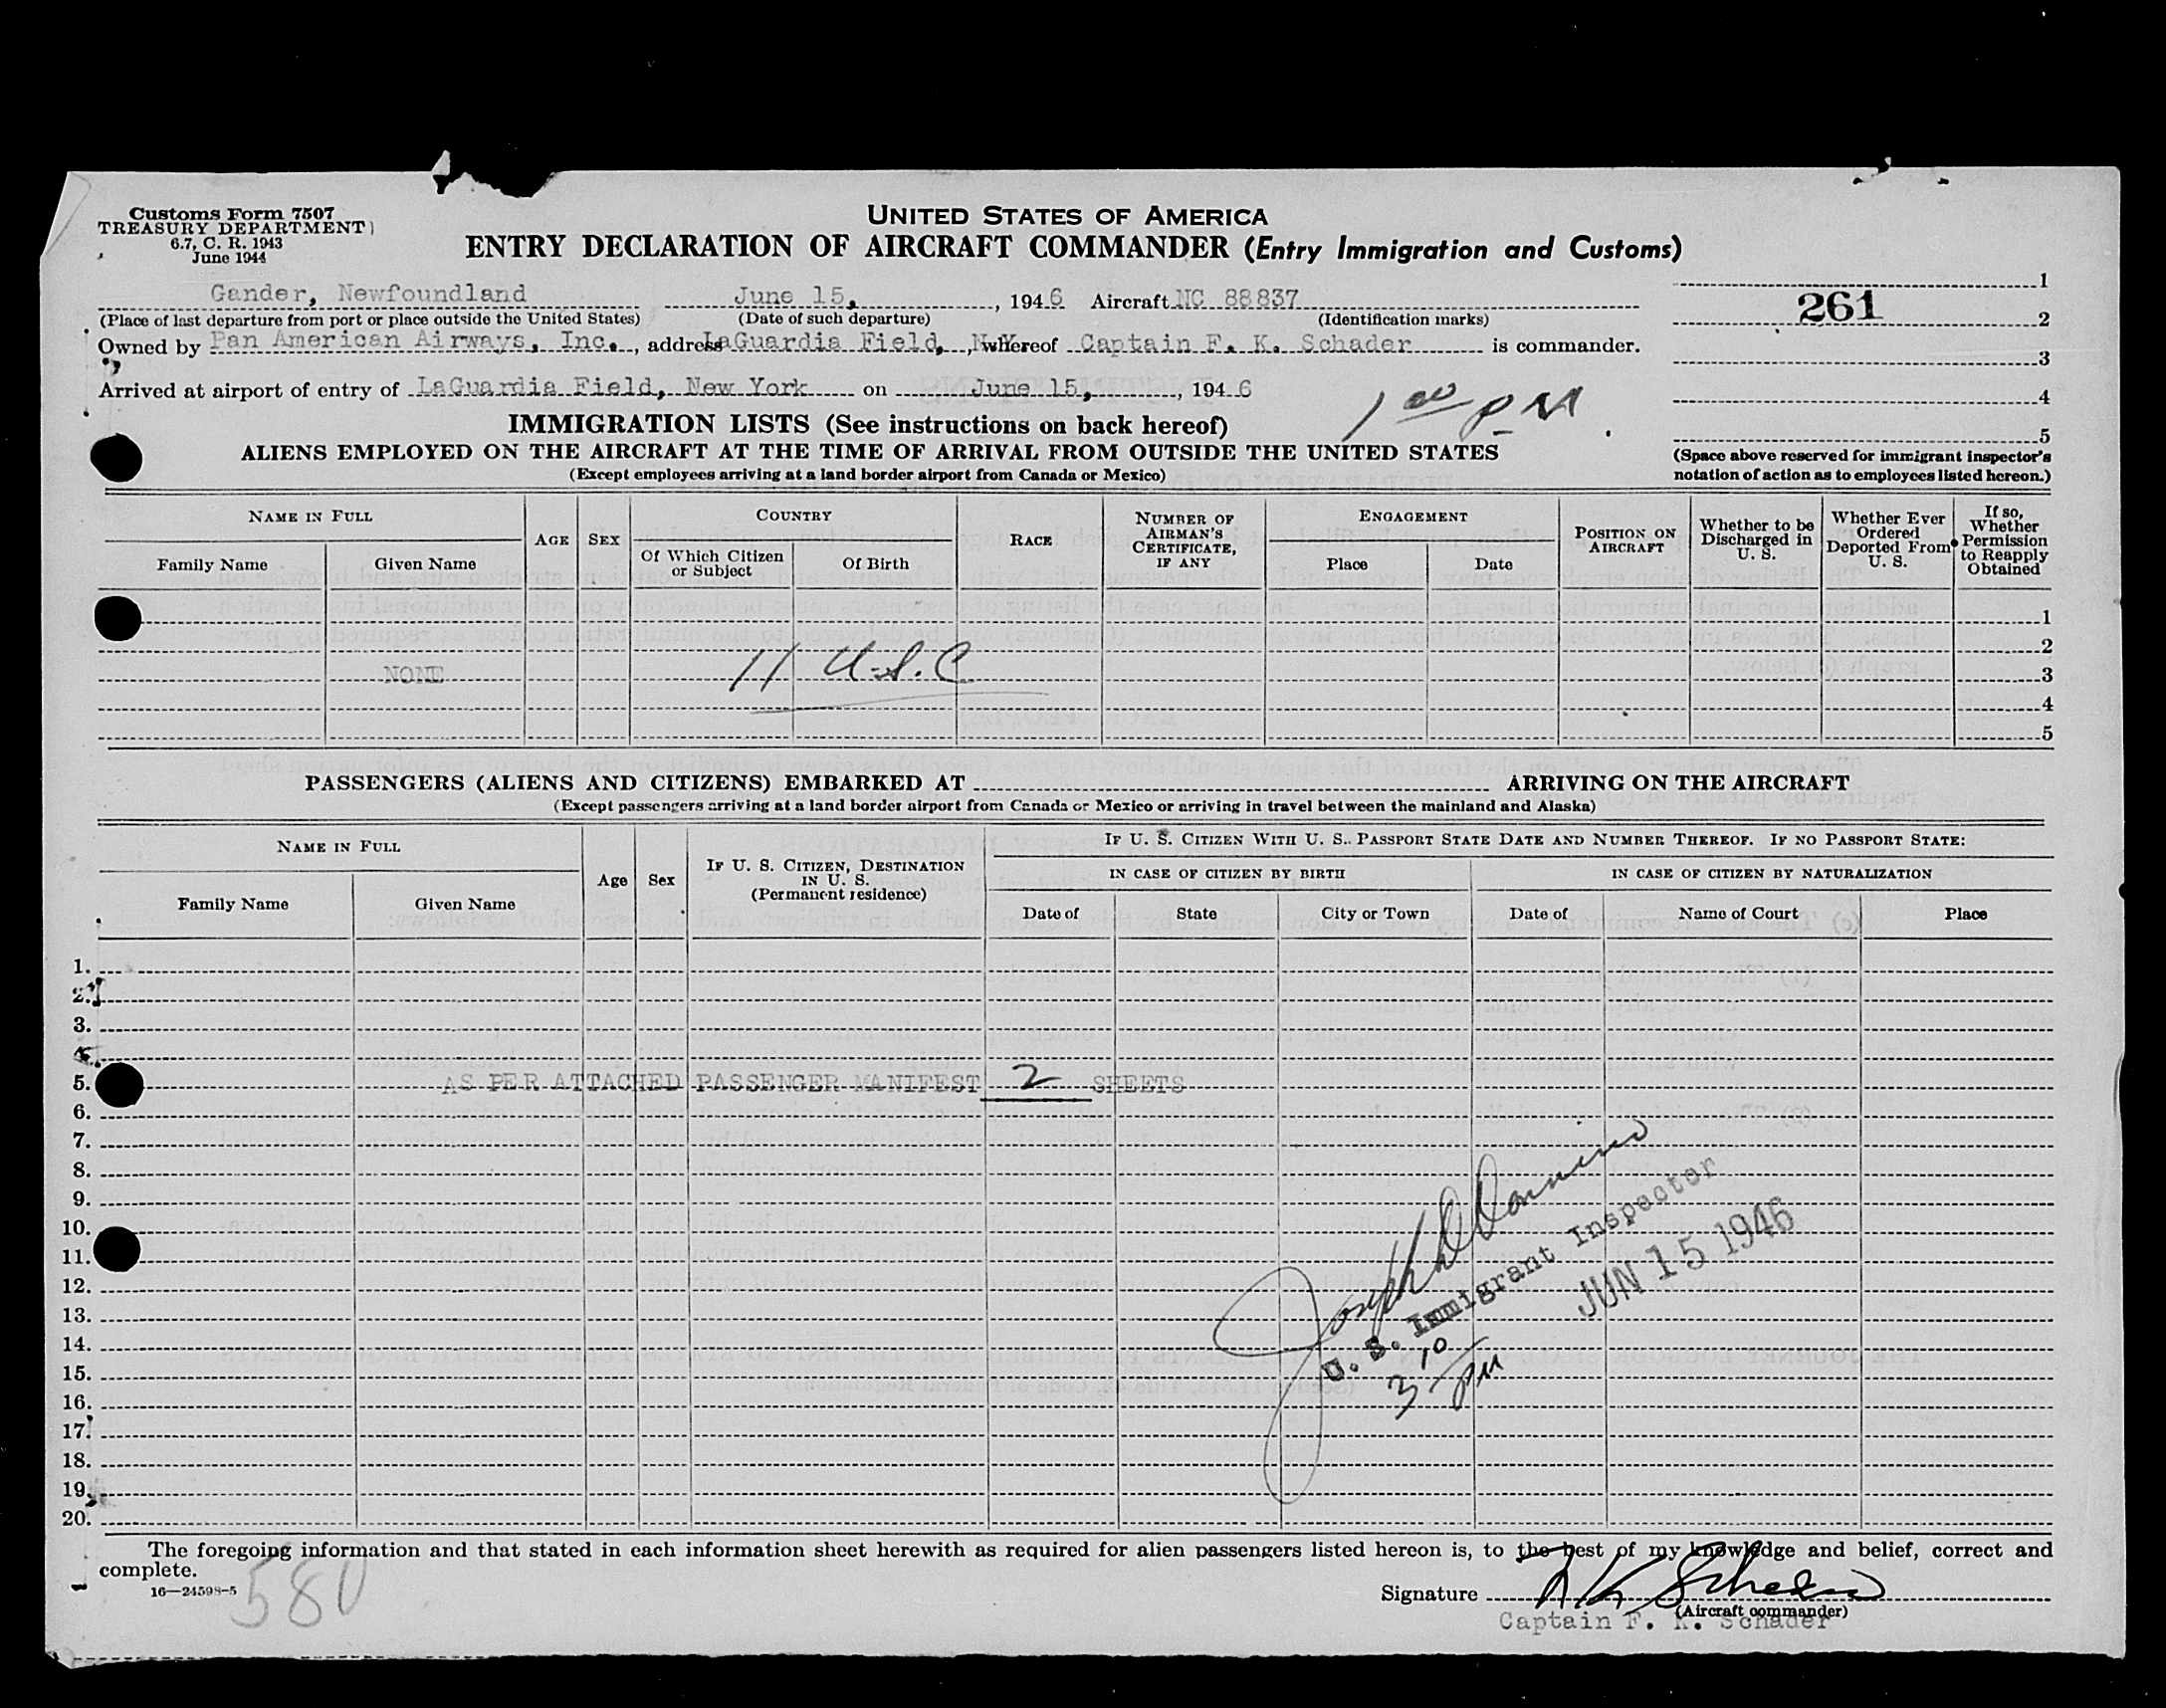 Customs Form 7507
TREASURY DEPARTMENT
6.7, C. R. 1943
June 1944
UNITED STATES OF AMERICA
ENTRY DECLARATION OF AIRCRAFT COMMANDER (Entry Immigration and Customs)
Gander, Newfoundland June 15, , 1946 Aircraft NC 88837
(Place of last departure from port or place outside the United States) (Date of such departure) (Identification marks)
Owned by Pan American Airways, Inc. , address LaGuardia Field, N.Y. , whereof Captain F. K. Schader is commander.
Arrived at airport of entry of LaGuardia Field, New York on June 15, , 1946
1 00 PM
1
261
2
3
4
5
(Space above reserved for immigrant inspector's
notation of action as to employees listed hereon.)
IMMIGRATION LISTS (See instructions on back hereof)
ALIENS EMPLOYED ON THE AIRCRAFT AT THE TIME OF ARRIVAL FROM OUTSIDE THE UNITED STATES
(Except employees arriving at a land border airport from Canada or Mexico)
NAME IN FULL
Family Name
Given Name
AGE
SEX
COUNTRY
Of Which Citizen
or Subject
Of Birth
RACE
NUMBER OF
AIRMAN'S
CERTIFICATE,
IF ANY
ENGAGEMENT
Place
Date
POSITION ON
AIRCRAFT
Whether to be
Discharged in
U. S.
Whether Ever
Ordered
Deported From
U. S.
If so,
Whether
Permission
to Reapply
Obtained
1
2
NONE 11 U.S.C 3
4
5
PASSENGERS (ALIENS AND CITIZENS) EMBARKED AT ARRIVING ON THE AIRCRAFT
(Except passengers arriving at a land border airport from Canada or Mexico or arriving in travel between the mainland and Alaska)
NAME IN FULL
Family Name
Given Name
Age
Sex
IF U. S. CITIZEN, DESTINATION
IN U. S.
(Permanent residence)
IF U. S. CITIZEN WITH U. S. PASSPORT STATE DATE AND NUMBER THEREOF. IF NO PASSPORT STATE:
IN CASE OF CITIZEN BY BIRTH
Date of
State
City or Town
IN CASE OF CITIZEN BY NATURALIZATION
Date of
Name of Court
Place
1.
2.
3.
4.
5. AS PER ATTACHED PASSENGER MANIFEST 2 SHEETS
6.
7.
8.
9.
10.
11.
12.
13.
14.
15.
16.
17.
18.
19.
20.
Joseph D Donnino
U. S. Immigrant Inspector
JUN 15 1946
3 10 PM
The foregoing information and that stated in each information sheet herewith as required for alien passengers listed hereon is, to the best of my knowledge and belief, correct and
complete.
16—24598-5
580
Signature FK Schader
(Aircraft commander)
Captain F. K. Schader